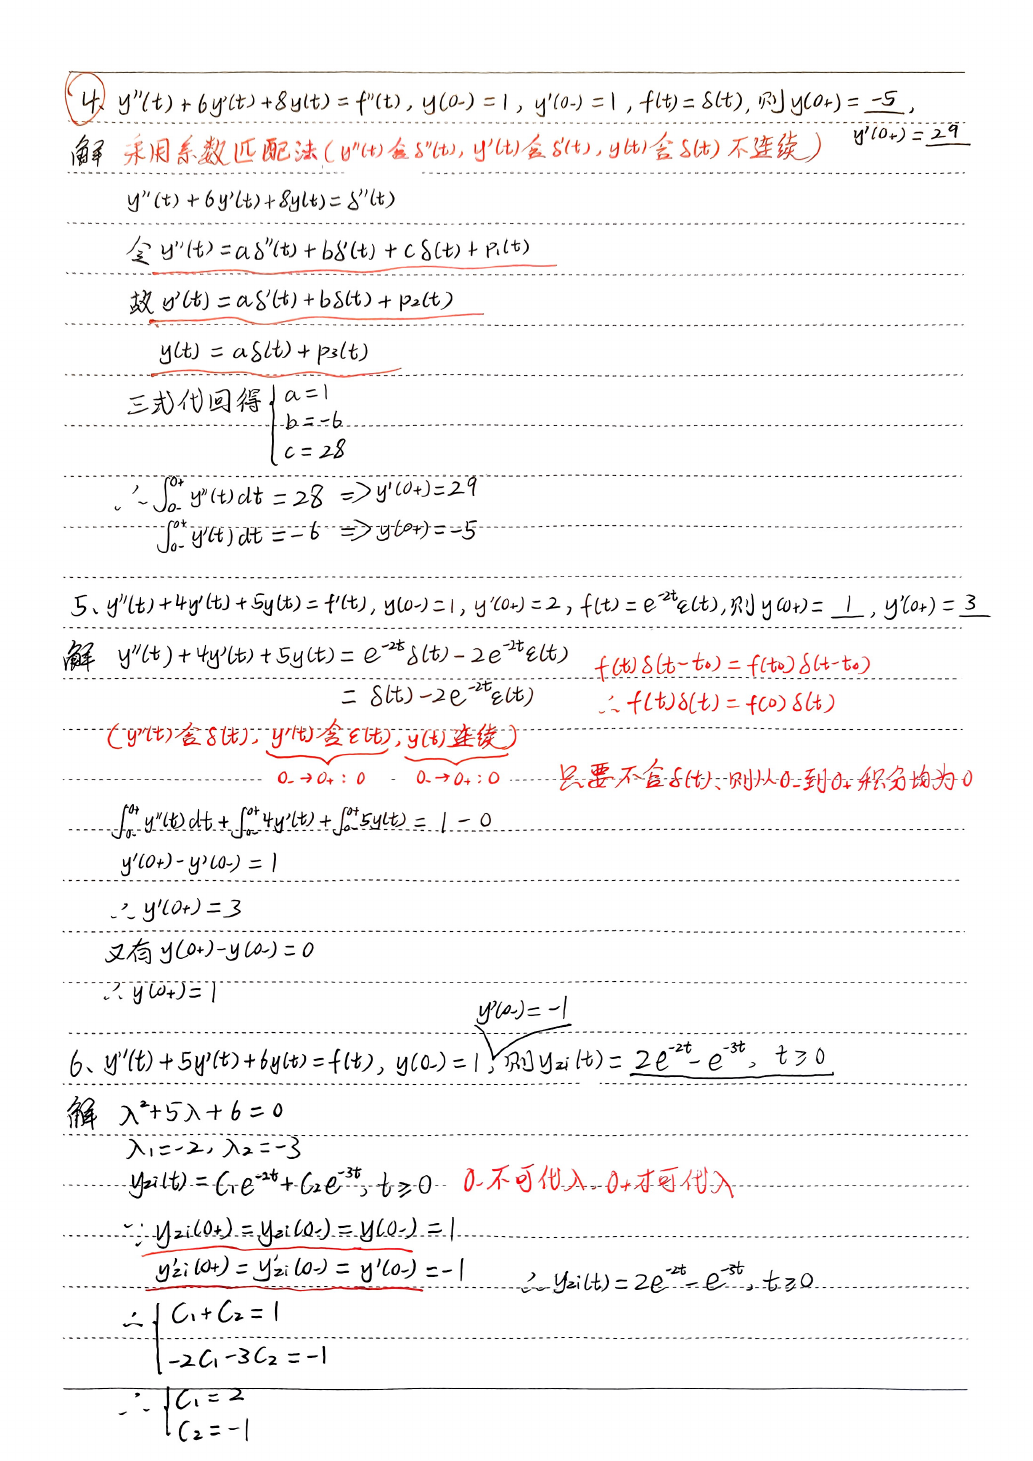 4、y''(t)+6y'(t)+8y(t)=f''(t), y(0-)=1, y'(0-)=1, f(t)=δ(t), 则y(0+)=-5,
y'(0+)=29
解 采用系数匹配法(y''(t)含δ''(t), y'(t)含δ'(t), y(t)含δ(t)不连续)
y''(t)+6y'(t)+8y(t)=δ''(t)
令 y''(t)=aδ''(t)+bδ'(t)+cδ(t)+p₁(t)
故 y'(t)=aδ'(t)+bδ(t)+p₂(t)
y(t)=aδ(t)+p₃(t)
三式代回得{a=1
b=-6
c=28
∴∫0-0+ y''(t)dt=28 => y'(0+)=29
∫0-0+ y'(t)dt=-6 => y(0+)=-5
5、y''(t)+4y'(t)+5y(t)=f'(t), y(0-)=1, y'(0+)=2, f(t)=e⁻²ᵗε(t), 则y(0+)=1, y'(0+)=3
解 y''(t)+4y'(t)+5y(t)=e⁻²ᵗδ(t)-2e⁻²ᵗε(t)
f(t)δ(t-t₀)=f(t₀)δ(t-t₀)
=δ(t)-2e⁻²ᵗε(t)
∴f(t)δ(t)=f(0)δ(t)
(y''(t)含δ(t), y'(t)含ε(t), y(t)连续)
0-→0+:0 0-→0+:0 只要不含δ(t)、则从0-到0+积分均为0
∫0-0+ y''(t)dt+∫0-0+ 4y'(t)+∫0-0+ 5y(t)=1-0
y'(0+)-y'(0-)=1
∴y'(0+)=3
又有y(0+)-y(0-)=0
∴y(0+)=1
y'(0-)=-1
6、y''(t)+5y'(t)+6y(t)=f(t), y(0-)=1, 则yzi(t)=2e⁻²ᵗ-e⁻³ᵗ, t≥0
解 λ²+5λ+6=0
λ₁=-2, λ₂=-3
yzi(t)=C₁e⁻²ᵗ+C₂e⁻³ᵗ, t≥0 0-不可代入、0+才可代入
∵yzi(0+)=yzi(0-)=y(0-)=1
y'zi(0+)=y'zi(0-)=y'(0-)=-1
∴yzi(t)=2e⁻²ᵗ-e⁻³ᵗ, t≥0
∴{C₁+C₂=1
-2C₁-3C₂=-1
∴{C₁=2
C₂=-1